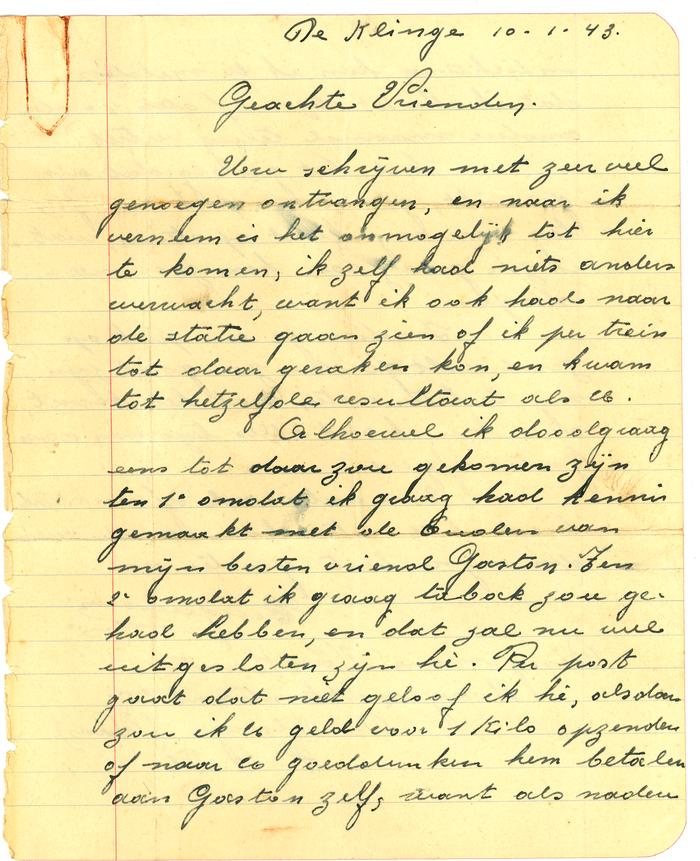 De Klinge 10-1-43.
Geachte Vrienden.
Uw schrijven met zeer veel
genoegen ontvangen, en naar ik
verneem is het onmogelijk tot hier
te komen, ik zelf had niets anders
verwacht, want ik ook had naar
de statie gaan zien of ik per trein
tot daar geraken kon, en kwam
tot hetzelfde resultaat als U.
Alhoewel ik doodgraag
eens tot daar zou gekomen zijn
ten 1° omdat ik graag had kennis
gemaakt met de Ouders van
mijn besten vriend Gaston. Ten
2° omdat ik graag tabak zou ge-
had hebben, en dat zal nu wel
uitgesloten zijn hè. Per post
gaat dat niet geloof ik hè, alsdan
zou ik U geld voor 1 Kilo opzenden
of naar U goeddunken hem betalen
aan Gaston zelf, want als naden